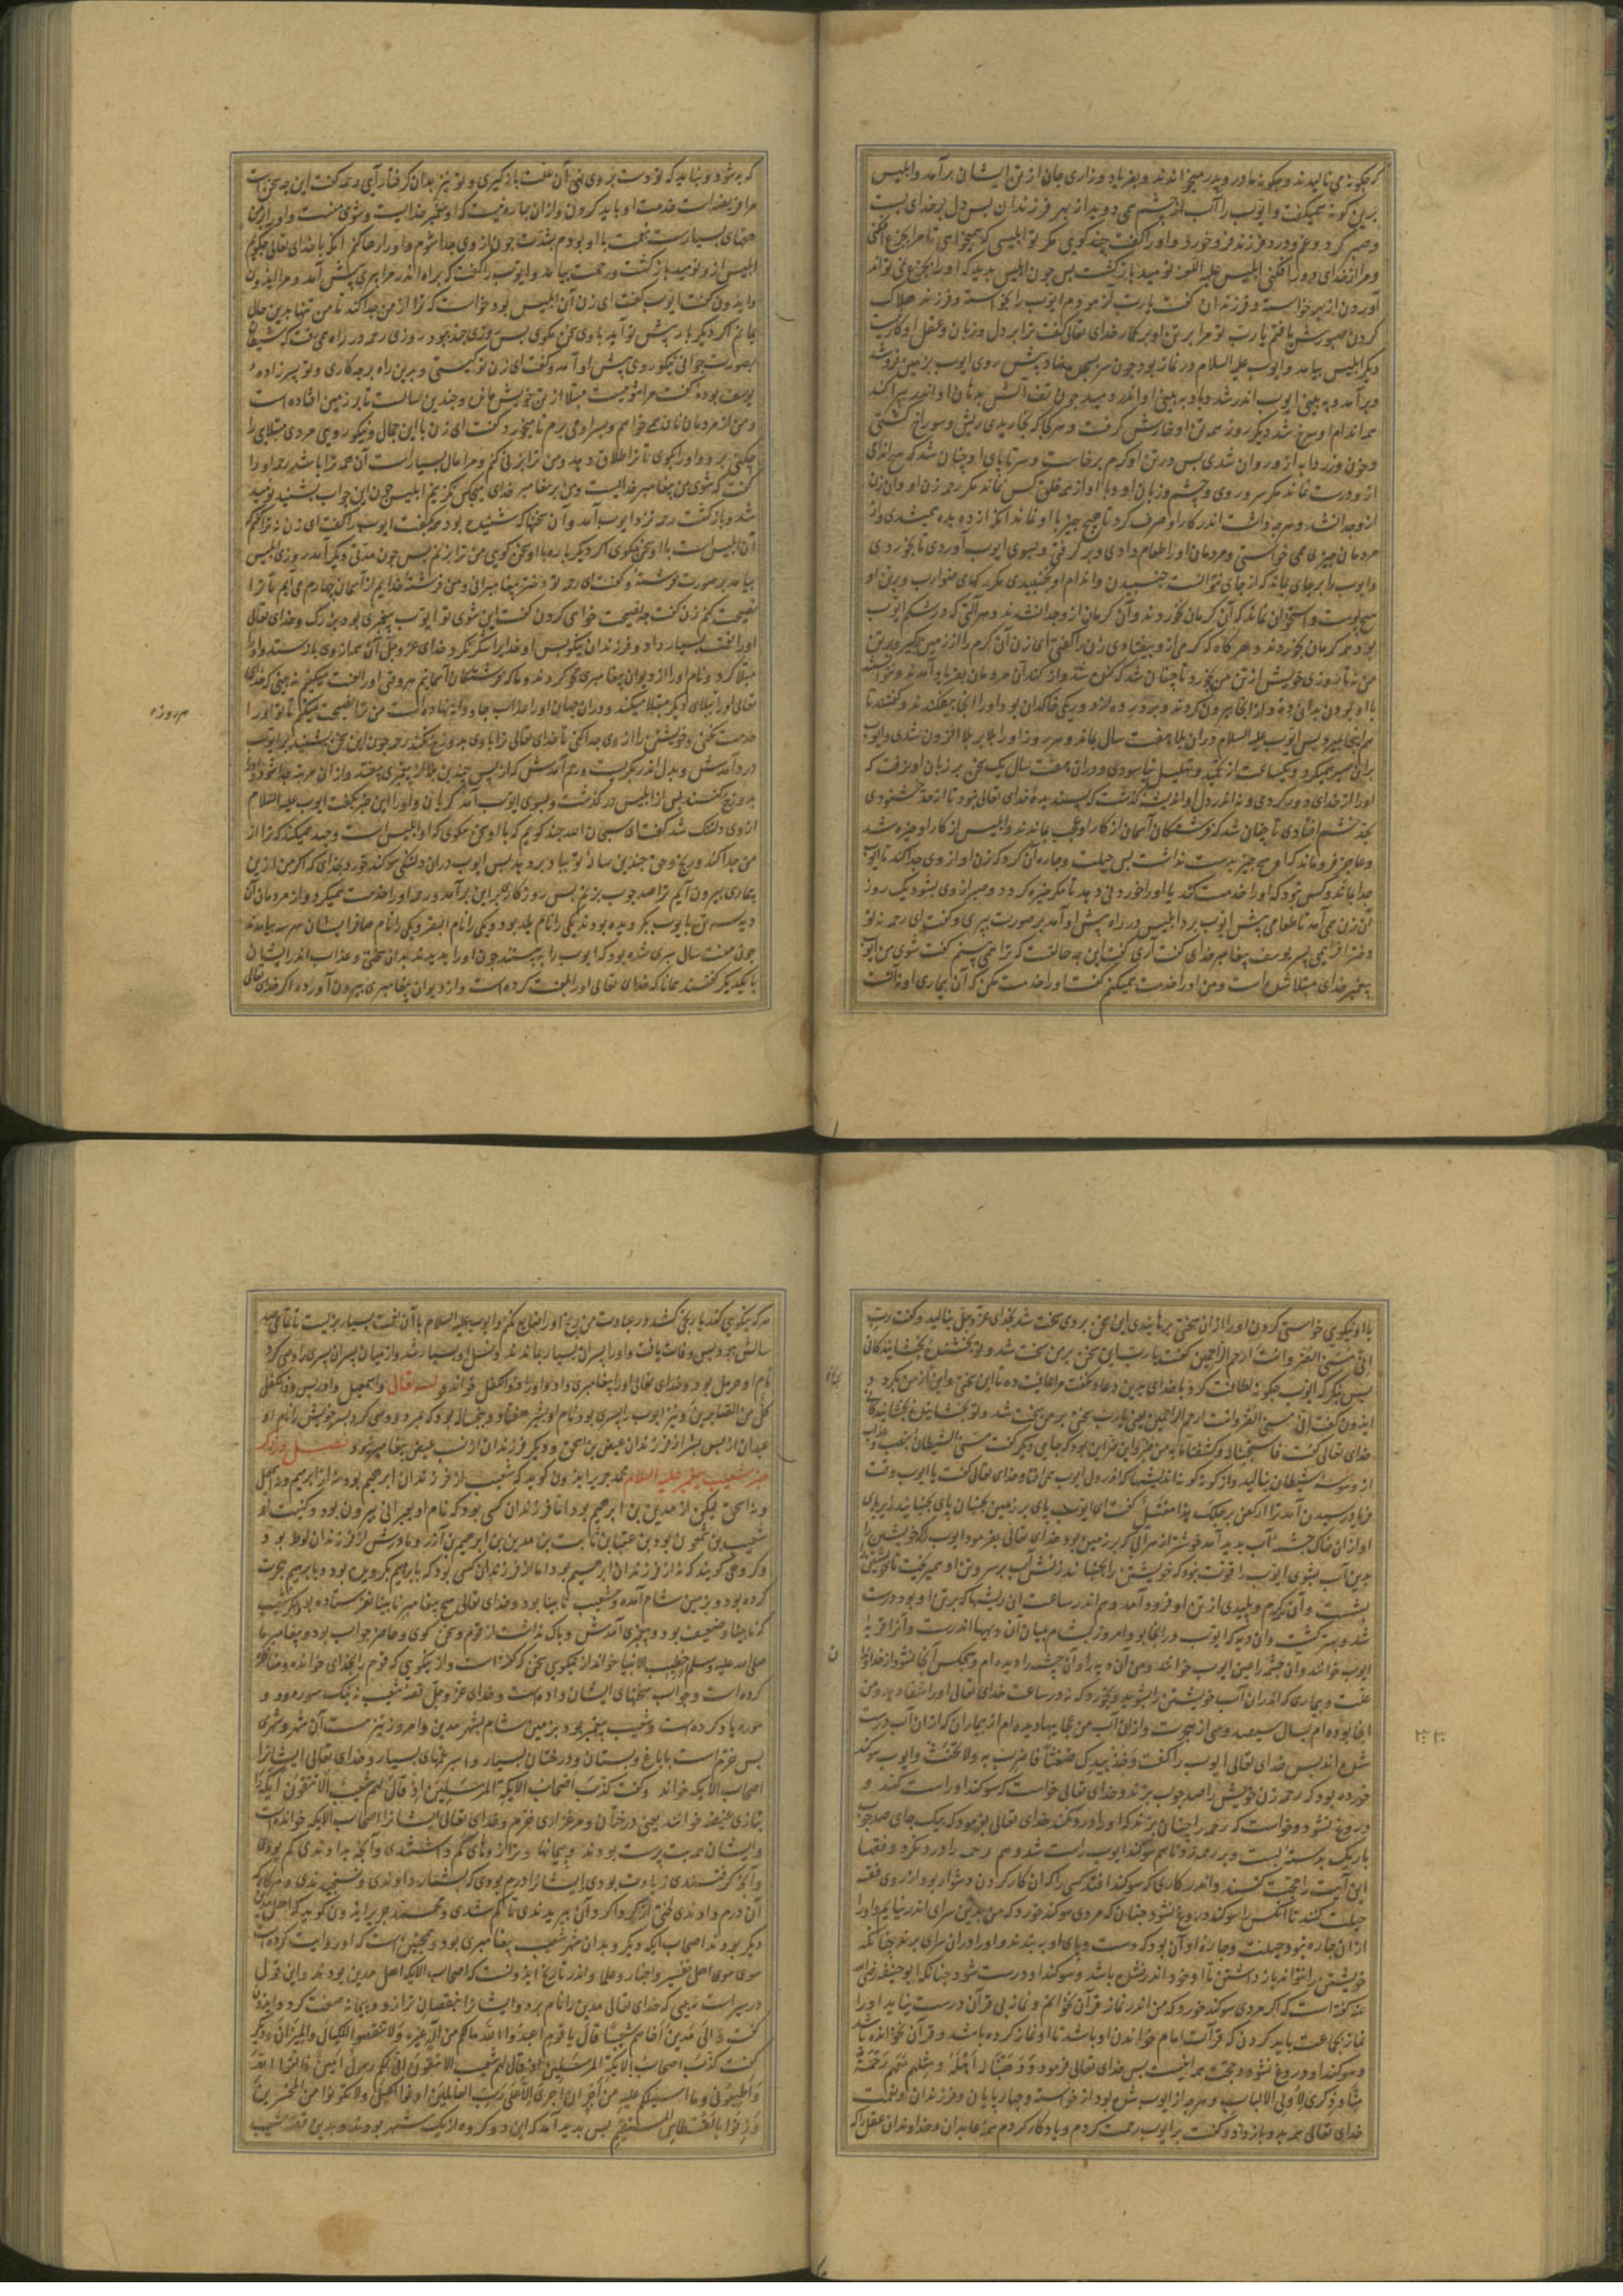 کر چکونه می نالیدند و چکونه مادر و پدر میخواندند و بفریاد و زاری جان از تن ایشان برآمد و ابلیس
برین کونه همیکفت و ایوب را آب از چشم می دوید از بهر فرزندان پس دل بر خدای بست
و صبر کرد و غم و درد فرزند فرو خورد و او را کفت چند کویی مکر تو ابلیسی که همیخواهی تا مرا بجزع افکنی
و مرا از خدای دور افکنی ابلیس علیه اللعنه نومید بازکشت پس چون ابلیس بدید که او را بجزع می نتواند
آوردن از بهر خواسته و فرزندان کفت یا رب آزمودم ایوب را بخواسته و فرزند هلاک
کردن صبورش یافتم یا رب تو مرا بر تن او بر کار خدای تعالی کفت ترا بر دل و زبان و عقل او کار نیست
دیکر ابلیس بیامد و ایوب علیه السلام در نماز بود چون سر بسجده نهاد پیش روی ایوب بزمین فرو شد
و برآمد و به بینی ایوب اندر شد و باد به بینی او اندر دمید چون تف آتش بدهان او اندر پراکند
همه اندام او سرخ شد دیکر روز همه تن او خارش کرفت و هر کجا که بخاریدی ریش و سوراخ کشتی
و خون و زرداب از و روان شدی پس در تن او کرم برخاست و سر تا پای او چنان شد که هیچ جای
از و درست نماند مکر سر و روی و چشم و زبان او و با او از همه خلق کس نماند مکر رحمه زن او و آن زن
از و جدا نشد و هرچه داشت اندر کار او صرف کرد تا هیچ چیز با او نماند آنکه از ده بده همیشدی و از
مردمان چیزی می خواستی و مردمان او را طعام دادی و برکرفتی و بسوی ایوب آوردی تا بخوردی
و ایوب را بر جای بماند که از جای نتوانست جنبیدن و اندام او نجنبیدی مکر رکهای ضوارب و بر تن او
هیچ پوست و استخوان نماند که آن کرمان نخوردند و آن کرمان از و جدا نشدند و هر آلتی که در شکم ایوب
بود همه کرمان بخوردند و هر کاه که کرمی از و بیفتادی زن را کفتی ای زن آن کرم را از زمین برکیر و بر تن
من نه تا روزی خویش از تن من بخورد تا چنان شد که کنده شد و از کند آن مردمان بفریاد آمدند و نتوانستند
با او بودن بدان ده و از آنجا بیرون کردند و بر در ده لاد و ریکی خاکدان بود او را آنجا بیفکندند و کفتند تا
هم اینجا بمیرد پس ایوب علیه السلام در آن بلا هفت سال بماند و هر روز او را بلا بر بلا افزون شدی و ایوب
بر آن صبر میکرد و یکساعت از تکبیر و تهلیل نیاسودی و در آن هفت سال یک سخن بر زبان او نرفت که
او را از خدای دور کردی و نه اندر دل او اندیشه کذشت که پسندیده خدای تعالی نبود تا از حد خشنودی
بحد خشم افتادی تا چنان شد که فرشتکان آسمان از کار او عجب بماندند و ابلیس از کار او خیره شد
و عاجز فروماند که او هیچ چیز بدست نداشت پس حیلت و چاره آن کرد که زن او از وی جدا کند تا ایوب
جدا بماند و کس نبود که او را خدمت کند یا او را خوردنی دهد تا مکر خیره کردد و صبر از وی بشود یک روز
آن زن می آمد تا طعامی پیش ایوب برد ابلیس در راه پیش او آمد بر صورت پیری و کفت ای رحمه نه تو
دختر افرائیمی پسر یوسف پیغامبر خدای کفت آری کفت این چه حالتست که ترا همی بینم کفت شوی من ایوب
پیغمبر خدای مبتلا شده است و من او را خدمت همیکنم کفت او را خدمت مکن که آن بیماری او نه آنست
که به شود و نباید که تو دست بر وی نهی آن علت بازکیری و تو نیز بدان کرفتار آیی رحمه کفت این چه سخن است
مرا فریضه است خدمت او باید کردن و از آن چاره نیست که او پیغمبر خدایست و شوی منست و او را بر من
حقهای بسیارست بنعمت با او بودم بشدت چون از وی جدا شوم و او را رها کنم آنکه با خدای تعالی چکویم
ابلیس از و نومید بازکشت و رحمه بیامد و ایوب را کفت که براه اندر مرا پیری پیش آمد و مرا ایدون
و ایدون کفت ایوب کفت ای زن آن ابلیس بود خواست که ترا از من جدا کند تا من تنها بدین حال
بمانم اکر دیکر بار پیش تو آید با وی سخن مکوی پس روزی چند بود روزی رحمه در راه می رفت که شیطان
بصورت جوانی نیکو روی پیش او آمد و کفت ای زن تو کیستی و برین راه بر چه کاری و تو پسر زاده
یوسف بوده کفت مرا شویست مبتلا از تن خویش و چندین سالست تا بر زمین افتاده است
و من از مردمان نان همی خواهم و بسر او می برم تا میخورد کفت ای زن با این جمال و نیکو رویی مردی مبتلای را
چکنی برو و او را بکوی تا ترا طلاق دهد و من ترا بزنی کنم و مرا مال بسیار است آن همه ترا باشد رحمه او را
کفت که شوی من پیغامبر خدایست و من بر پیغامبر خدای هیچکس نکزینم ابلیس چون این جواب بشنید نومید
شد و بازکشت رحمه نزد ایوب آمد و آن سخنها که شنیده بود همه بکفت ایوب را کفت ای زن نه ترا کفتم
آن ابلیس است با او سخن مکوی اکر دیکر باره با او سخن کویی من ترا بزنم پس چون مدتی دیکر آمد روزی ابلیس
بیامد بر صورت فرشته و کفت ای رحمه تو دختر پیغامبرانی و من فرشته خدایم از آسمان چهارم می آیم تا ترا
نصیحت کنم زن کفت چه نصیحت خواهی کردن کفت این شوی تو ایوب پیغمبری بود بزرک و خدای تعالی
او را نعمت بسیار داد و فرزندان نیکو پس او خدایرا شکر نکرد خدای عز و جل آن همه از وی بازستد و او را
مبتلا کرد و نام او را از دیوان پیغامبری محو کردند و ما که فرشتکان آسمانیم هر وقتی او را لعنت میکنیم نه بینی که خدای
تعالی او را بلای دیکر مبتلا میکند و در آن جهان او را عذاب جاودانه نهاده است من ترا نصیحت میکنم تا تو او را
م روزه
خدمت نکنی و خویشتن را از وی جدا کنی تا خدای تعالی ترا با وی بدوزخ نیفکند رحمه چون این سخن بشنید بر ایوب
در و آمدش و بدل اندر بکریست و رحم آمدش که از پس چندین بلا از پیغمبری بیفتد و از آن مرتبه جدا شود و او را
بدوزخ کنند پس از ابلیس درکذشت و بسوی ایوب آمد کریان و او را این خبر بکفت ایوب علیه السلام
از وی دلتنک شد کفت ای سبحان الله چند کویم که با او سخن مکوی که او ابلیس است و جهد میکند که ترا از
من جدا کند و رنج و حق چندین ساله تو بباد بر دهد پس ایوب در آن دلتنکی سوکند خورد بخدای که اکر من ازین
بیماری بیرون آیم ترا صد چوب بزنم پس روزکار بر این برآمد و رحمه او را خدمت همیکرد و از مردمان آن
دیه سه تن بایوب بکرویده بودند یکی را نام یلد بود و یکی را نام الیفز و یکی را نام صافر ایشان هر سه بیامدند
چون هفت سال سپری شده بود که ایوب را بپرسند چون او را بدیدند بدان سختی و عذاب اندر ایشان
با یکدیکر کفتند همانا که خدای تعالی او را لعنت کرده است و از دیوان پیغامبری بیرون آورده اکر خدای تعالی
با او نیکویی خواستی کردن او را از آن سختی برهانیدی این سخن بر وی سخت شد بخدای عز و جل بنالید و کفت رب
انی مسنی الضر و انت ارحم الراحمین کفت یا رب این سخن بر من سخت شد و تو بخشنده بخشایندکانی
پس بنکر که ایوب چکونه لطافت کرد با خدای بدین دعا و نکفت مرا عافیت ده تا این سختی و این از من بکرد
ایدون کفت انی مسنی الضر و انت ارحم الراحمین یعنی یا رب سختی بر من سخت شد و تو بخشاینده بخشایندکانی
خدای تعالی کفت فاستجبنا له و کشفنا ما به من ضر و این ضر این بود که جایی دیکر کفت مسنی الشیطان بنصب و عذاب
از وسوسه شیطان بنالید و از کونه کونه اندیشها که اندر دل ایوب می افتاد خدای تعالی کفت یا ایوب وقت
فریاد رسیدن آمد ترا ارکض برجلک هذا مغتسل کفت ای ایوب پای بر زمین بجنبان پای بجنبانید زیر پای
او از آن خاک چشمه آب پدید آمد خوشتر از هر آبی که بر زمین بود خدای تعالی بفرمود ایوب را که خویشتن را
بدین آب بشوی ایوب را قوت نبود که خویشتن را بجنباند زنش آب بر سر و تن او همیریخت تا خویشتن
بشست و آن کرم و پلیدی از تن او فرود آمد و هم اندر ساعت آن ریشها که بر تن او بود درست
شد و بهتر کشت و آن دیه که ایوب در آنجا بود امروز بشام میان آن دیهها اندرست و آنرا قریه
ایوب خوانند و آن چشمه را عین ایوب خوانند و من آن دیه را و آن چشمه را دیده ام و هیچکس آنجا نشود از خداوندان
علت و بیماری که اندر آن آب خویشتن را بشوید و بخورد که نه در ساعت خدای تعالی او را شفا دهد و من
آنجا بوده ام بسال سیصد و سی از هجرت و از آن آب من عجایبها دیده ام از بیماران که از آن آب درست
شده اند پس خدای تعالی ایوب را کفت وخذ بیدک ضغثا فاضرب به ولا تحنث و ایوب سوکند
خورده بود که رحمه زن خویش را صد چوب بزند و خدای تعالی خواست که سوکند او راست کند و
دروغ نشود و خواست که رحمه را چنان بزند که او را درد نکند خدای تعالی بفرمود که بیک جای صد چوب
باریک بدسته بست و بر رحمه زد تا هم سوکند ایوب راست شد و هم رحمه را درد نکرد و فقها
این آیت را حجت کنند و اندر کاری که سوکند افتد کسی را که آن کار کردن دشوار بود از روی فقه
حیلت کنند تا آنکس را سوکند دروغ نشود چنان که مردی سوکند خورد که من بدین سرای اندر نیایم و او را
از آن چاره نبود حیلت و چاره او آن بود که دست و پای او ببندند و او را در آن سرای برند چنانکه
خویشتن را نتواند باز داشتن تا او خود اندر نشده باشد و سوکند او درست شود چنانکه ابو حنیفه رضی الله
عنه کفته است که اکر مردی سوکند خورد که من اندر نماز قرآن نخوانم و نماز بی قرآن درست نیاید او را
نماز بجماعت باید کردن که قرآت امام خواندن او باشد تا او نماز کرده باشد و قرآن نخوانده باشد
و سوکند او دروغ نشود و حجت همه اینست پس خدای تعالی فرمود و وهبنا له اهله و مثلهم معهم رحمة
منا و ذکری لاولی الالباب و هرچه از ایوب شده بود از خواسته و چهارپایان و فرزندان و نعمت
خدای تعالی همه بدو باز داد و کفت بر ایوب رحمت کردم و یادکار کردم همه عابدان و خداوندان عقل را که
هر که نیکویی کند یا رنجی کشد در عبادت من رنج او را ضایع نکنم و ایوب علیه السلام با آن نعمت بسیار بزیست تا عاقبت
سالش بود پس وفات یافت و او را پسران بسیار بماندند و نسل او بسیار شد و از میان پسران پسری را وصی کرد
نام او حومل بود و خدای تعالی او را پیغامبری داد و او را ذوالکفل خواند قوله تعالی و اسمعیل و ادریس و ذا الکفل
کل من الصابرین و نیز ایوب را پسری بود نام او بشر هفتاد و پنج ساله بود که بمرد و وصی کرد پسر خویش را نام او
عبدان از پس بشر از فرزندان عیص بن اسحق و دیکر فرزندان از نسب عیص پیغامبر نبود فصل در ذکر
خبر شعیب پیغمبر علیه السلام محمد جریر ایدون کوید که شعیب از فرزندان ابرهیم بود نه از ابرهیم و نه اسمعیل
و نه اسحق لیکن از مدین بن ابرهیم بود اما فرزندان کسی بود که نام او یجرانی بیرون بود و کنیت او
شعیب بن شمعون بود بن عنقا بن ثابت بن مدین بن ابرهیم بن آزر و مادرش از فرزندان لوط بود
و کروهی کویند که نه از فرزندان ابرهیم بود اما از فرزندان کسی بود که بابراهیم بکرویده بود و با ابرهیم هجرت
کرده بود و بزمین شام آمده و شعیب نابینا بود و خدای تعالی هیچ پیغامبر نابینا نفرستاده بود مکر شعیب
که نابینا و ضعیف بود و پیغمبری آمدش و باک نداشت از قوم و سخن کوی و حاضر جواب بود و پیغامبر ما
صلی الله علیه وسلم خطیب الانبیا خواند از نیکویی سخن که کفته است و از نیکویی که قوم را بخدای خوانده و مناظره
کرده است و جواب سخنهای ایشان داده است و خدای عز و جل قصه شعیب نه بیک سوره هود و
سوره یاد کرده است و شعیب پیغمبر بود بزمین شام بشهر مدین و امروز نیز هست آن شهر و شهری
بس خرم است با باغ و بستان و درختان بسیار و میوهای بسیار و خدای تعالی ایشانرا
اصحاب الایکه خواند و کفت کذب اصحاب الایکة المرسلین اذ قال لهم شعیب الا تتقون ایکه را
بتازی غیضه خوانند یعنی درختان و مرغزاری خرم و خدای تعالی ایشانرا اصحاب الایکه خوانده است
و ایشان همه بت پرست بودند و پیمانها و ترازوهای کم داشتندی و آنچه بدادندی کم بودی
و آنچه کرفتندی زیادت بودی ایشانرا درم بودی که بشمار دادندی و نسنجیدندی و هر کاه که
آن درم دادندی لختی از کرداکرد آن ببریدندی تا کم شدی و محمد جریر ایدون کوید که اهل مدین
دیکر بودند اصحاب ایکه دیکر و بدان شهر شعیب پیغامبری بود و همچنین است که او روایت کرده است
سوی موی اهل تفسیر و اخبار و علما و اندر تاریخ ایدونست که اصحاب الایکه اهل مدین بودند و این قول
درستر است نه بینی که خدای تعالی مدین را نام برد و ایشانرا بنقصان ترازو و پیمانه صفت کرد و ایدون
کفت و الی مدین اخاهم شعیبا قال یا قوم اعبدوا الله ما لکم من اله غیره و لا تنقصوا المکیال و المیزان و دیکر
کفت کذب اصحاب الایکة المرسلین اذ قال لهم شعیب الا تتقون انی لکم رسول امین فاتقوا الله
و اطیعون و ما اسئلکم علیه من اجر ان اجری الا علی رب العالمین اوفوا الکیل و لا تکونوا من المخسرین
و زنوا بالقسطاس المستقیم پس پدید آمد که این دو کروه از یک شهر بودند و بدین قصه شعیب